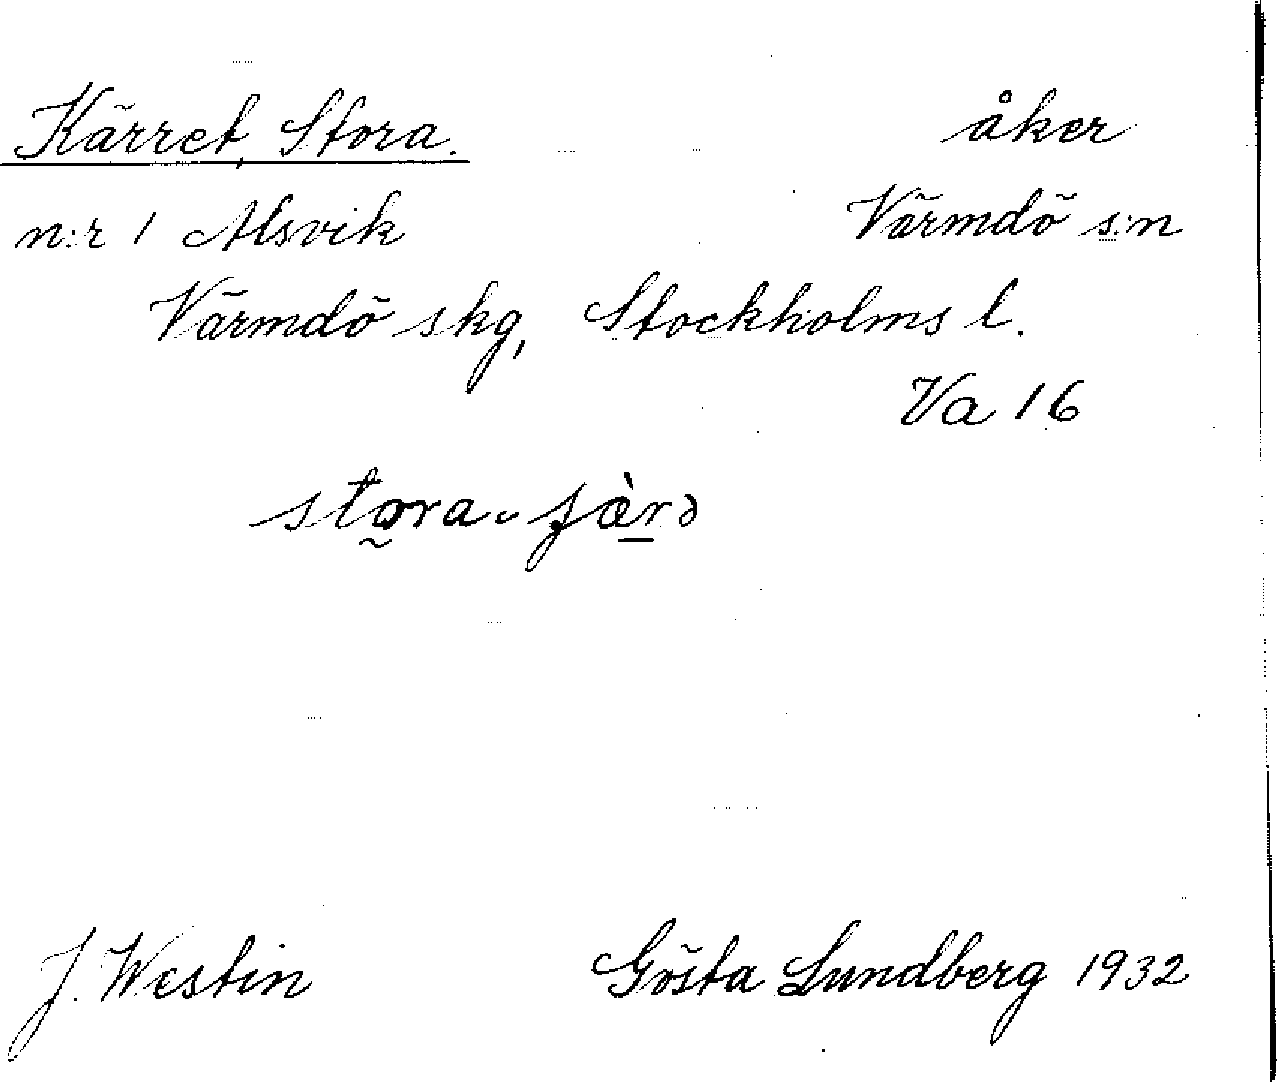 Kärret, Stora. åker
n:r 1 Alsvik Värmdö s:n
Värmdö skg, Stockholms l.
Va 16
stora
J. Westin Gösta Lundberg 1932